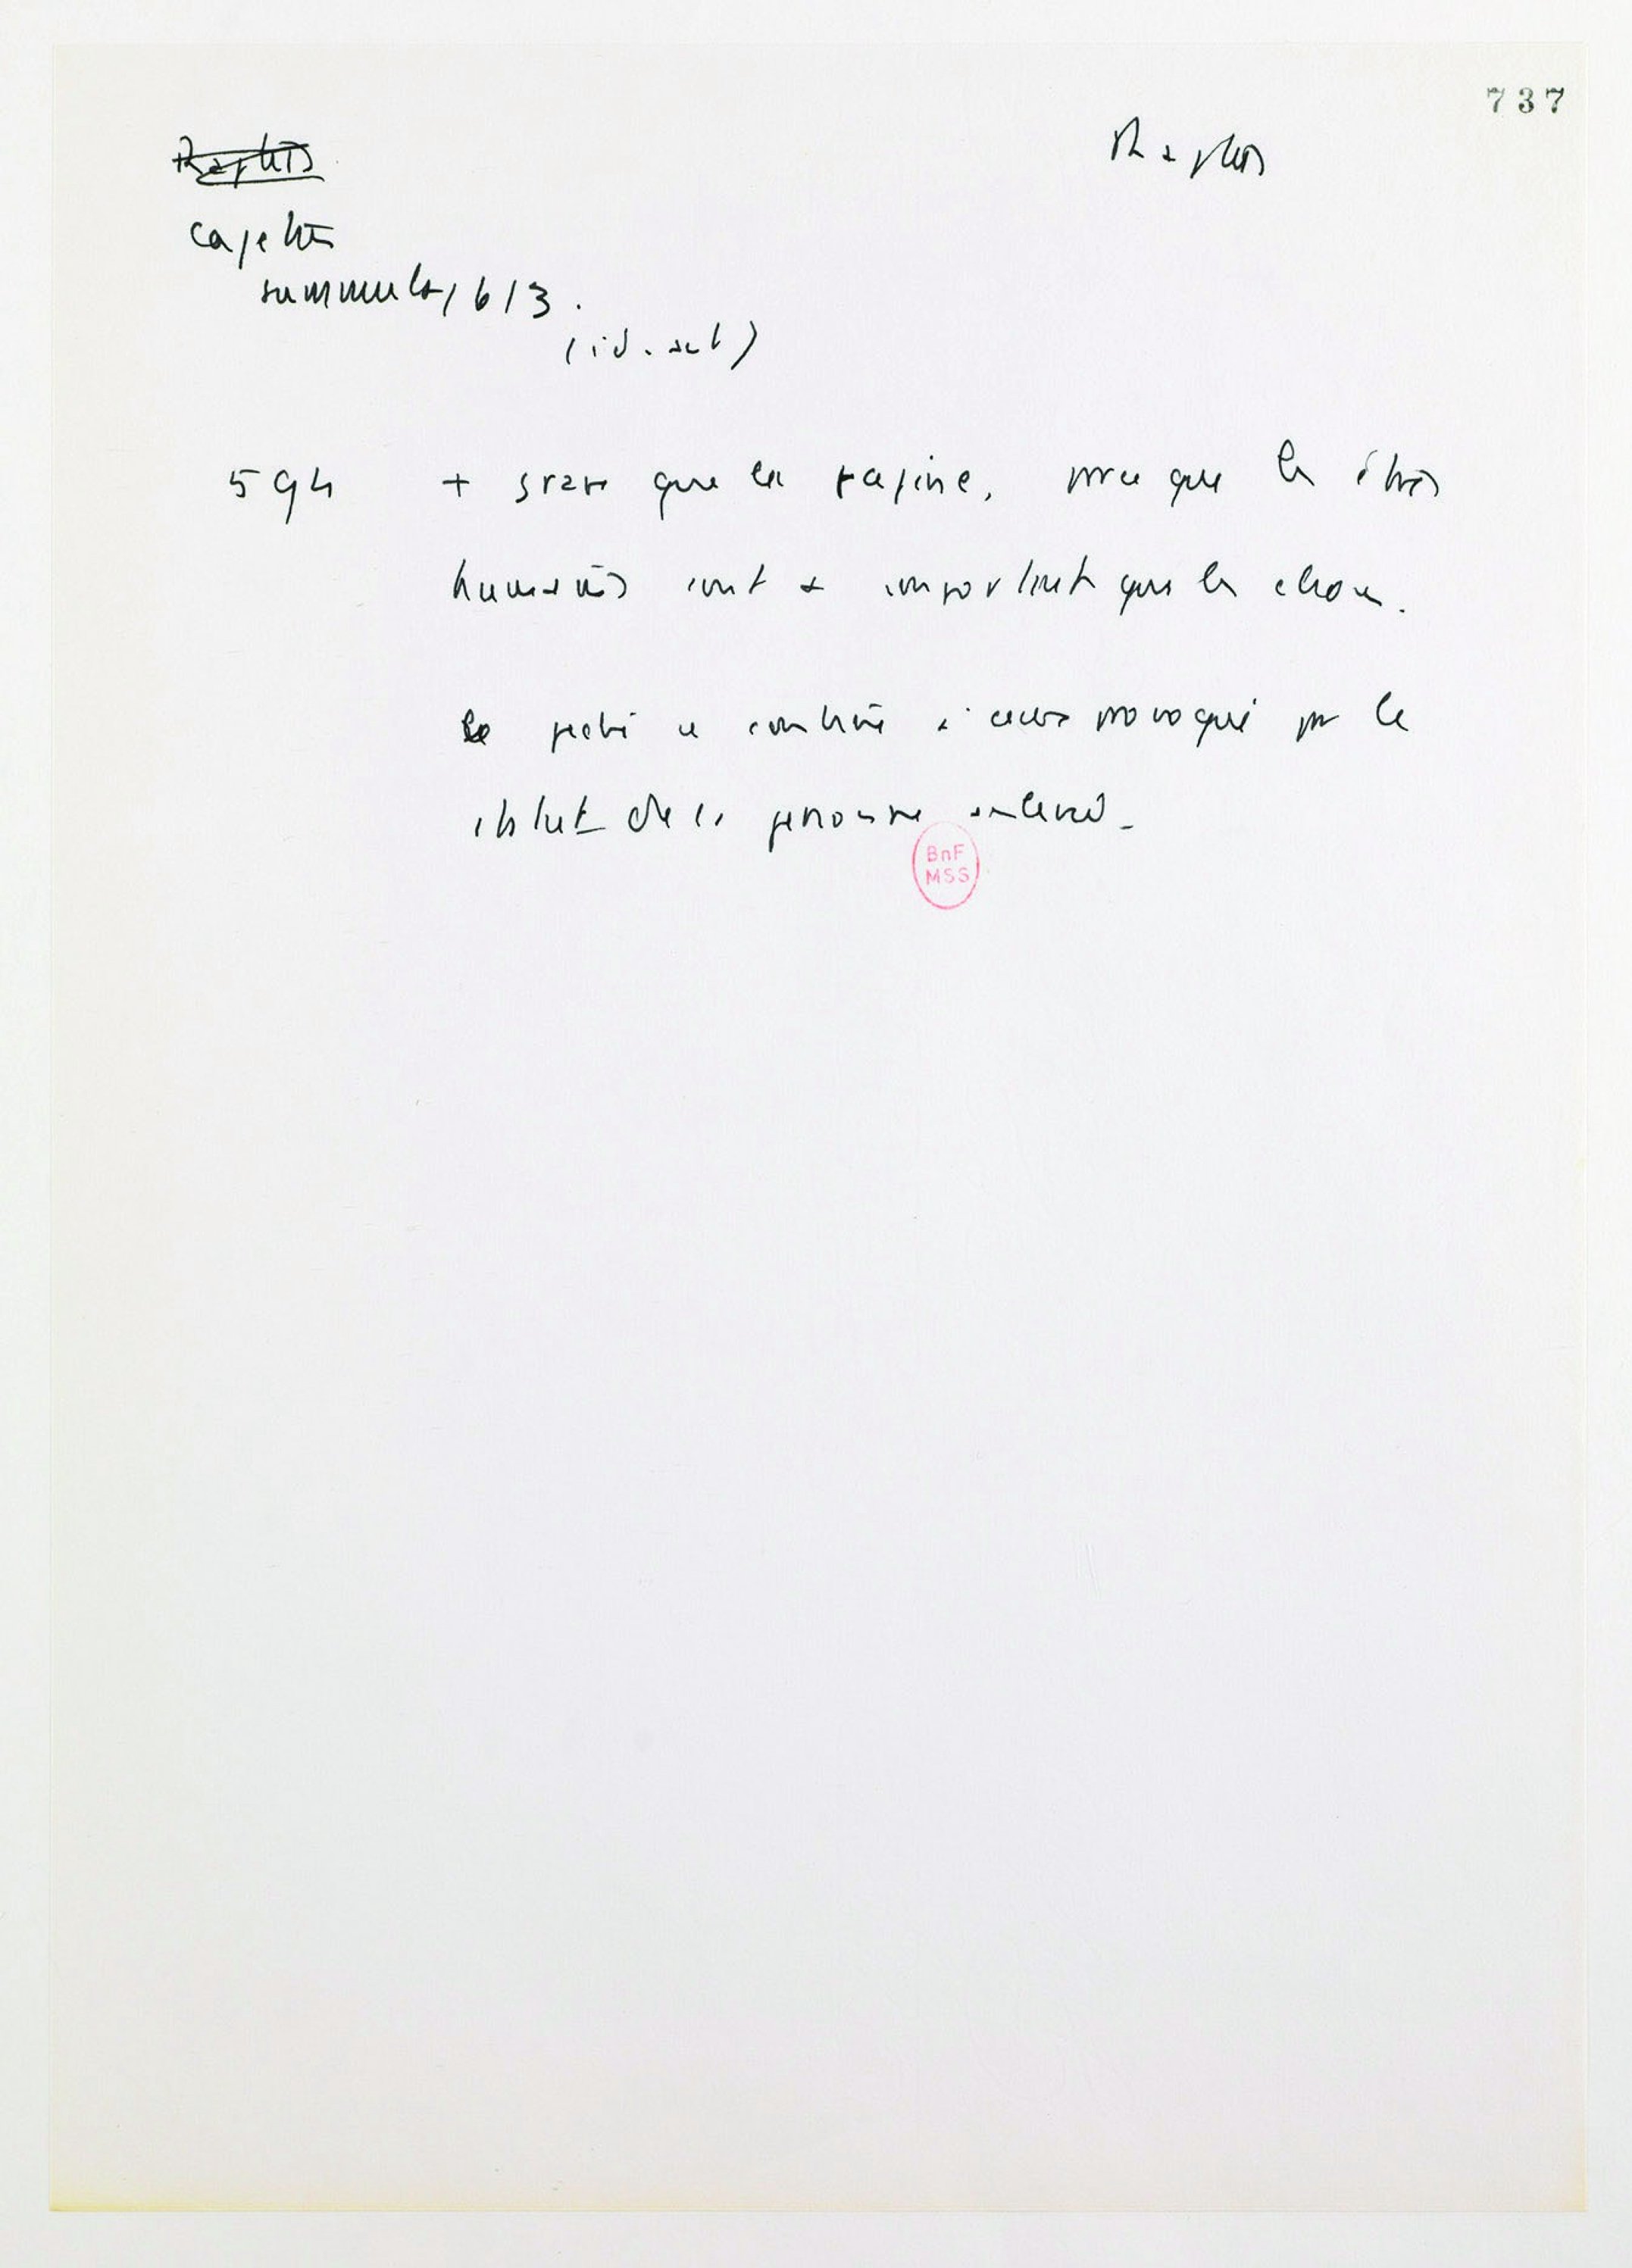 737
Raptus
Raptus
Cajetan
summula, 1613.
(id. est)
594 + grave que la rapine, parce que les êtres
humains sont + importants que les choses.
Le péché se combine à celui provoqué par le
statut de la personne enlevée.
BnF
MSS